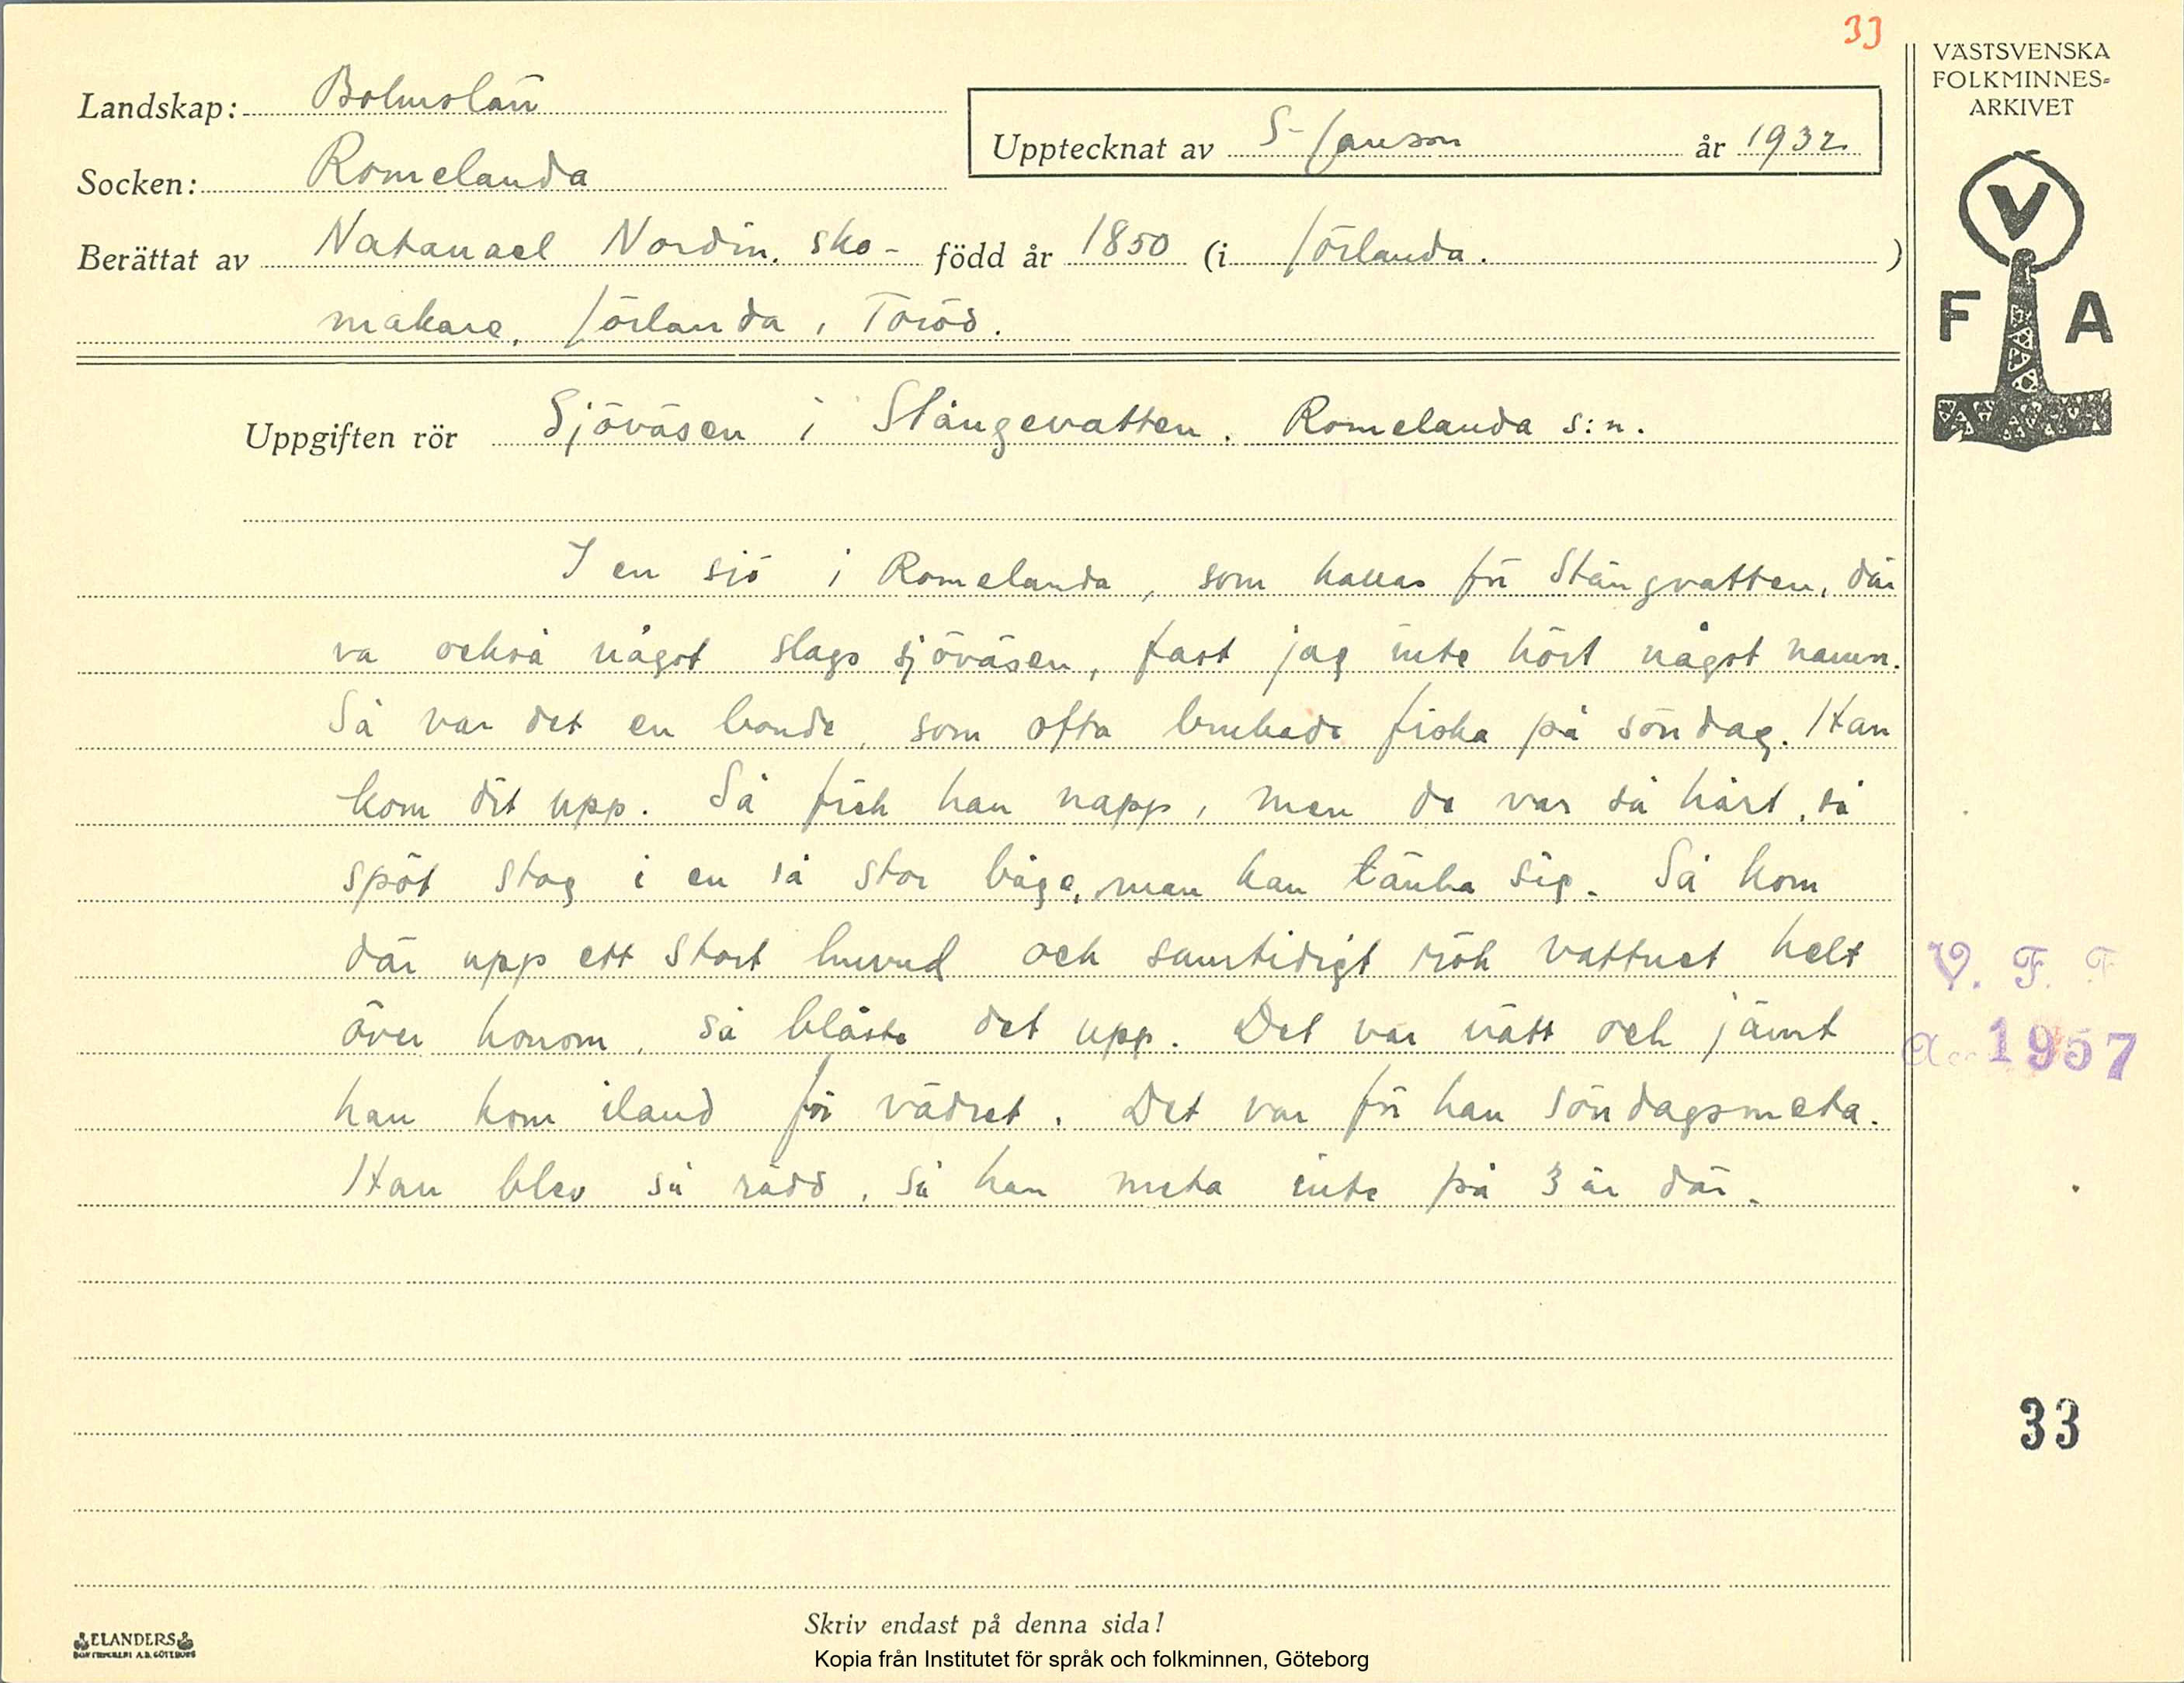 33
VÄSTSVENSKA
FOLKMINNES=
ARKIVET
V
F A
Landskap: Bohuslän
Upptecknat av S. Janson år 1932
Socken: Romelanda
Berättat av Natanael Nordin, sko- född år 1850 (i Jörlanda. )
makare, Jörlanda, Toröd.
Uppgiften rör Sjöväsen i Stångevatten. Romelanda s:n.
I en sjö i Romelanda, som kallas för Stångvatten, där
va också något slags sjöväsen, fast jag inte hört något namn.
Så var det en bonde, som ofta brukade fiska på söndag. Han
kom dit upp. Så fick han napp, men de var så hårt, så
spöt stog i en så stor båge, man kan tänka sig. Så kom
där upp ett stort huvud och samtidigt rök vattnet helt
över honom, så blåste det upp. Det var nätt och jämt
han kom iland för vädret. Det var för han söndagsmeta.
Han blev så rädd, så han meta inte på 3 år där.
V. F. F
Acc 1957
33
Skriv endast på denna sida!
ELANDERS
BOKTRYCKERI A.B. GÖTEBORG
Kopia från Institutet för språk och folkminnen, Göteborg